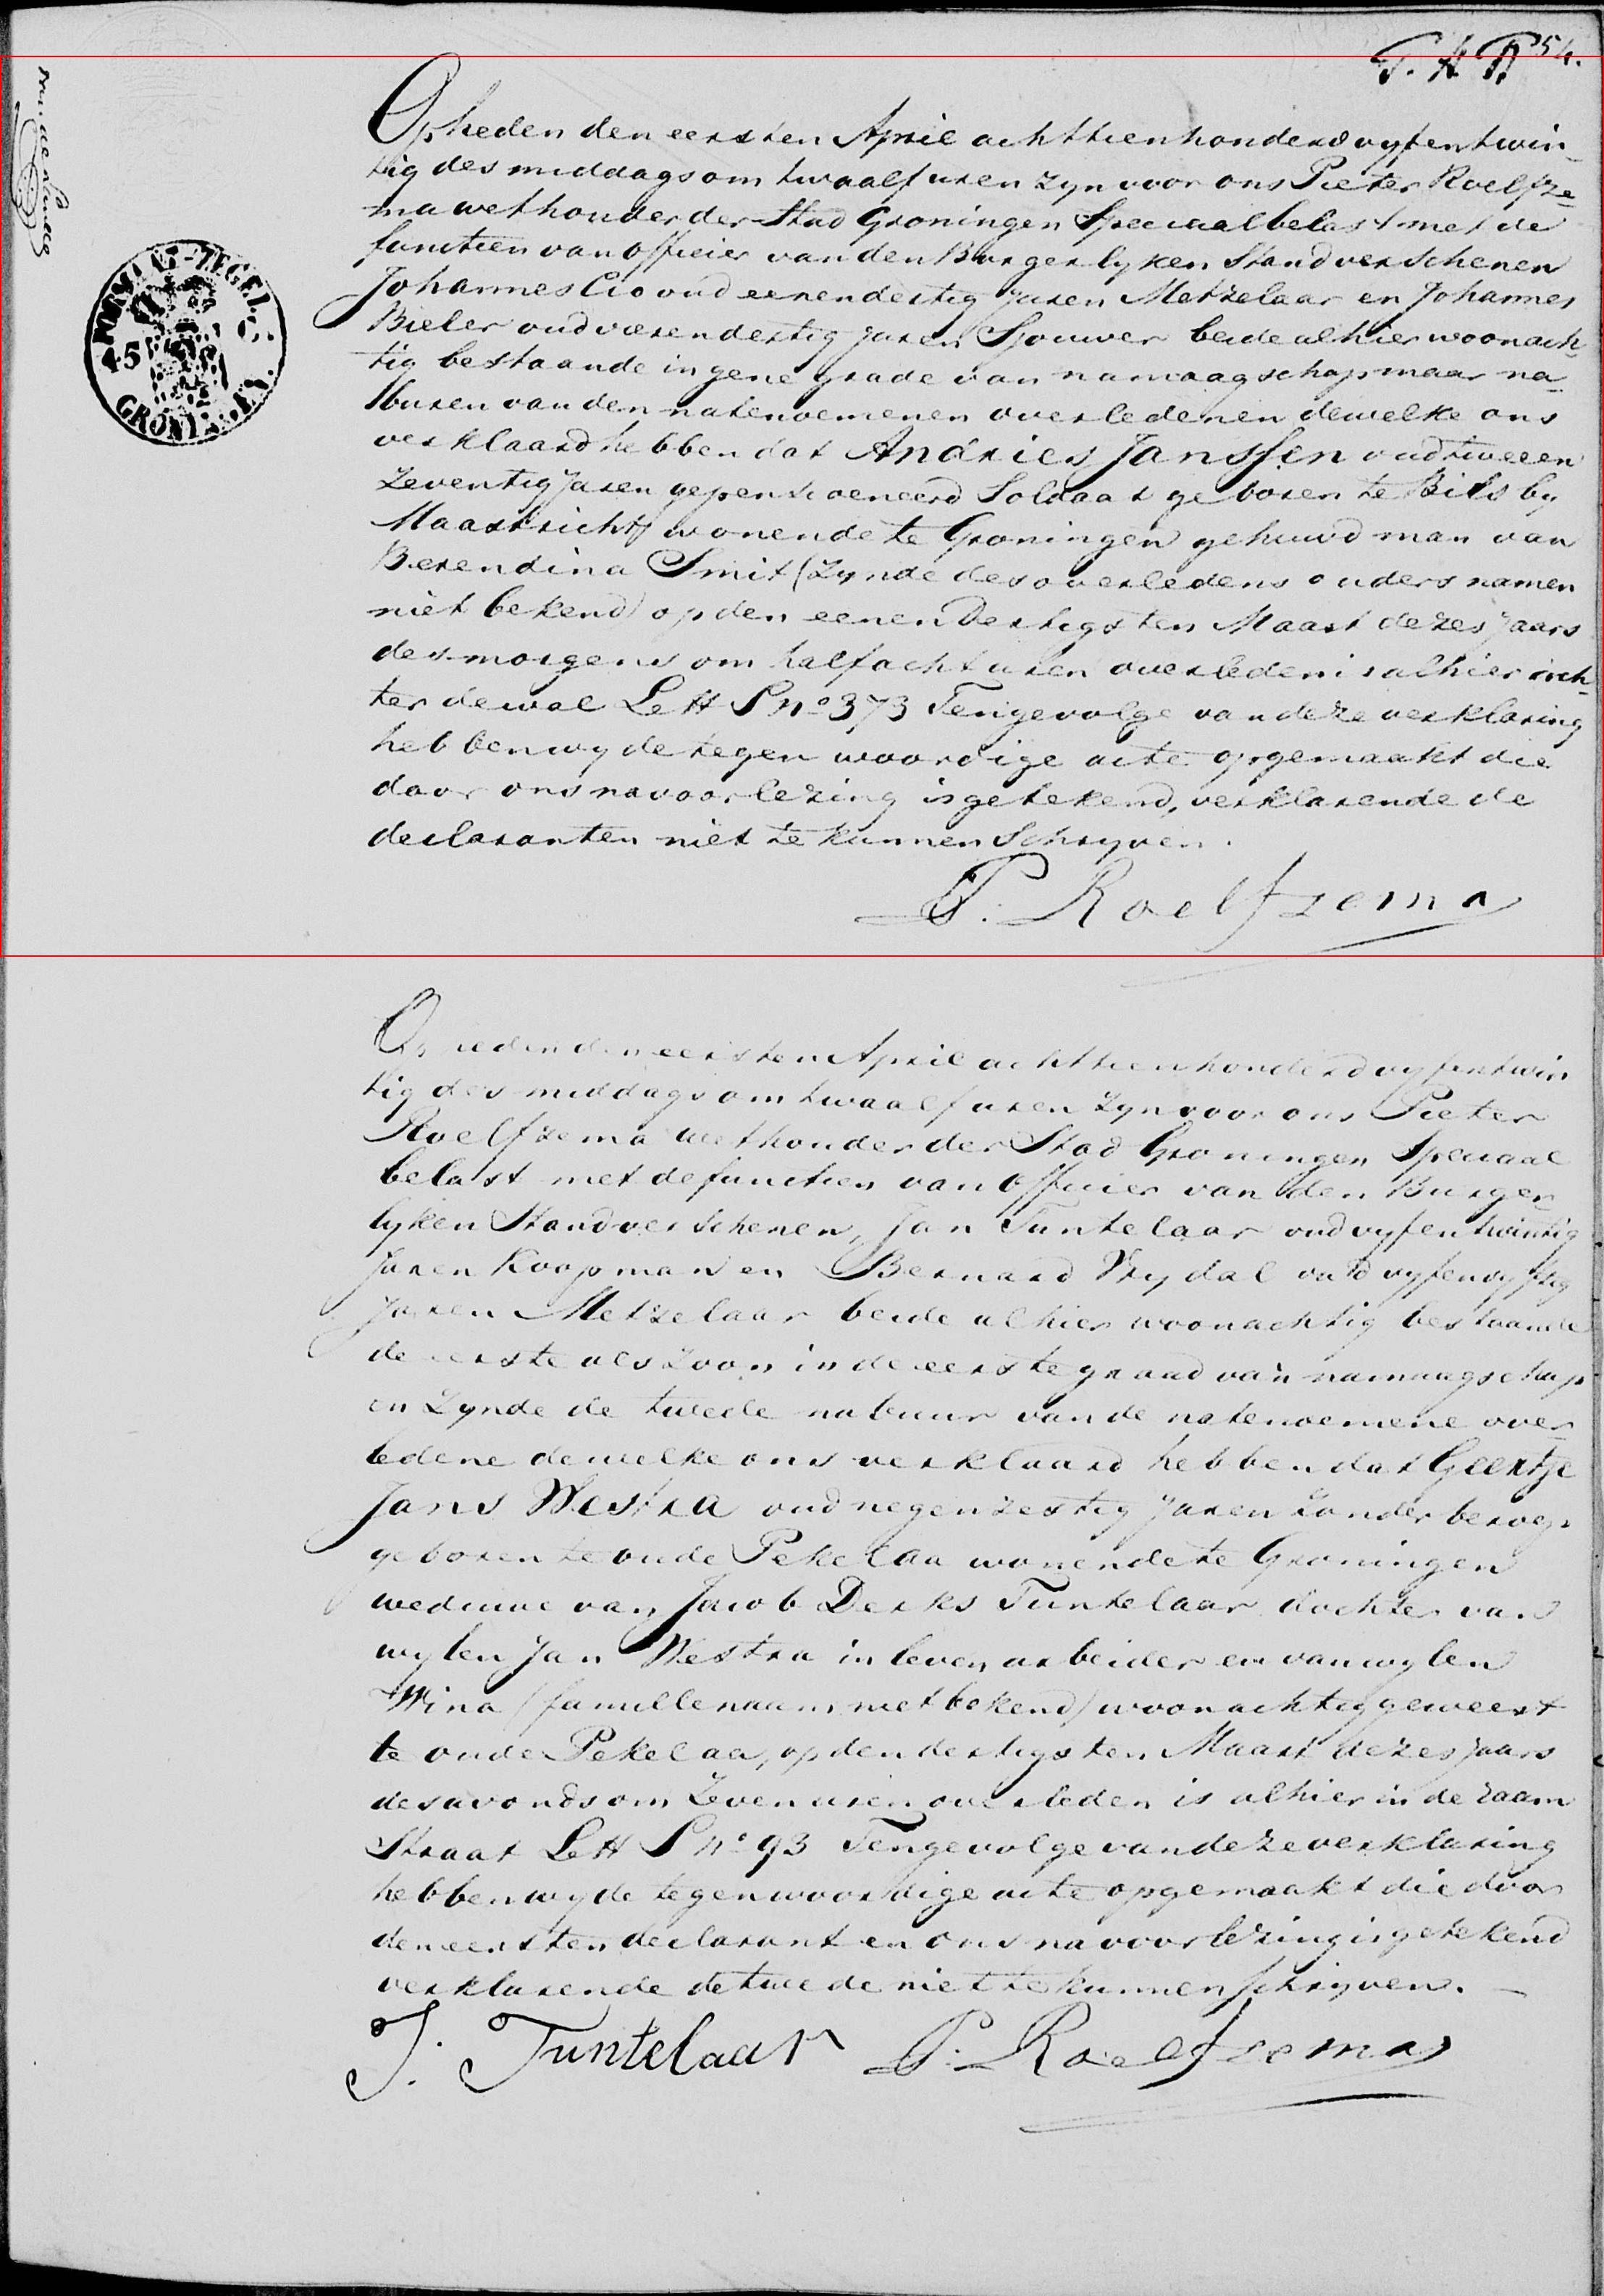 54.
Op heden den eersten April achttienhonderd vyfentwin-
tig des middags om twaalf uren zyn voor ons Pieter Roelfze-
ma wethouder der Stad Groningen Speciaal belast met de
functien van officier van den Burgerlyken Stand verschenen
Johannes oud eenendertig Jaren Metzelaar en Johannes
Bieler oud vierendertig Jaren Sjouwer beide alhier woonach-
tig bestaande in gene grade van namaagschap maar na-
buren van den natenoemenen overledenen dewelke ons
verklaard hebben dat Andries Janssen oud tweeen
Zeventig Jaren gepensioeneerd Soldaat geboren te Bils by
Maastricht wonende te Groningen gehuwd man van
Berendina Smit (Zynde des overledens ouders namen
niet bekend) op den eenen Dertigsten Maart dezes Jaars
des morgens om half acht uren overleden is alhier ach-
ter de wal Lett S no 373 Tengevolge van deze verklaring
hebben wy de tegenwoordige acte opgemaakt die
door ons na voorlezing is getekend, verklarende de
declaranten niet te kunnen Schryven.
P. Roelfzema
Op heden den eersten April achttienhonderd vyfentwin
tig des middags om twaalf uren zyn voor ons Pieter
Roelfzema wethouder der Stad Groningen Speciaal
belast met de functien van Officier van den Burger-
lyken Stand verschenen, Jan Tuntelaar oud vyfentwintig
Jaren Koopman en Bernard Vrydal oud vyfenvyftig
Jaren Metzelaar beide alhier woonachtig bestaande
de eerste als Zoon in de eerste graad van namaagschap
en Zynde de twede nabuur van de natenoemene over-
ledene dewelke ons verklaard hebben dat Geertje
Jans Westra oud negenzestig Jaren Zonder beroep
geboren te oude Pekelaa wonende te Groningen
weduwe van Jacob Derks Tuntelaar dochter van
wylen Jan Westra in leven arbeider en van wylen
Wina (famillenaam niet bekend) woonachtig geweest
te oude Pekelaa, op den dertigsten Maart dezes Jaars
des avonds om Zeven uren overleden is alhier in de raam
Straat Lett S no 93 Tengevolge van deze verklaring
hebben wy de tegenwoordige acte opgemaakt die door
den eersten declarant en ons na voorlezing is getekend
verklarende de twede niet te kunnen schryven.
J. Tuntelaar P. Roelfzema